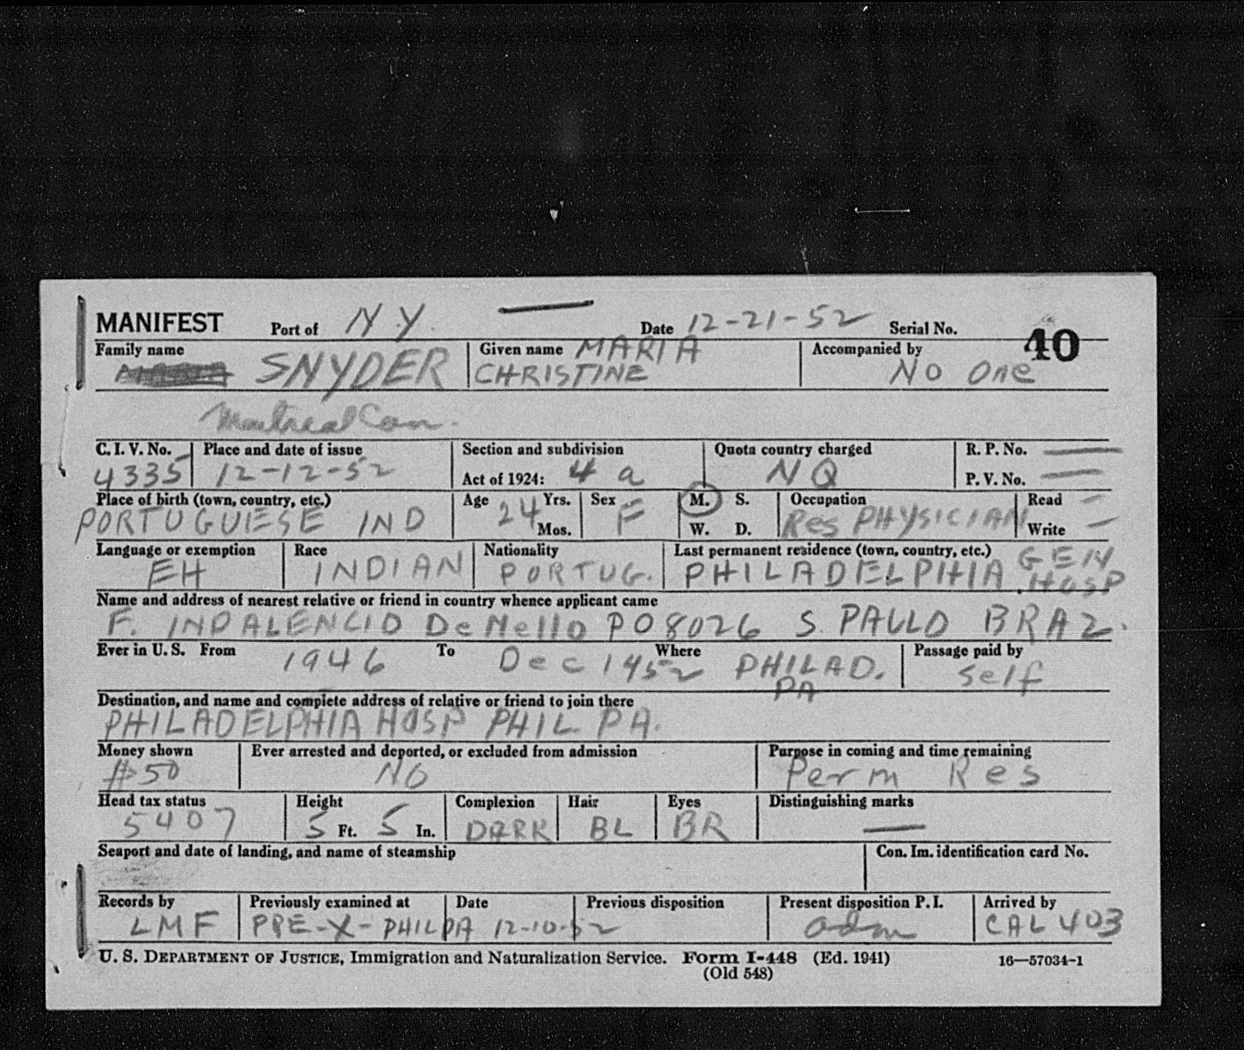 MANIFEST Port of N.Y. Date 12-21-52 Serial No. 40
Family name SNYDER Given name MARIA CHRISTINE Accompanied by No One
Montreal Can.
C. I. V. No. 4335 Place and date of issue 12-12-52 Section and subdivision Act of 1924: 4 a Quota country charged NQ R. P. No. — P. V. No. —
Place of birth (town, country, etc.) PORTUGUIESE IND Age 24 Yrs. Mos. Sex F M. S. W. D. Occupation Res PHYSICIAN Read — Write —
Language or exemption EH Race INDIAN Nationality PORTUG. Last permanent residence (town, country, etc.) PHILADELPHIA GEN. HOSP
Name and address of nearest relative or friend in country whence applicant came
F. INDALENCIO DeMello PO 8026 S. PAULO BRAZ.
Ever in U. S. From 1946 To Dec 1952 Where PHILAD. PA Passage paid by Self
Destination, and name and complete address of relative or friend to join there
PHILADELPHIA HOSP PHIL. PA.
Money shown $50 Ever arrested and deported, or excluded from admission NO Purpose in coming and time remaining Perm Res
Head tax status 5407 Height 5 Ft. 5 In. Complexion DARK Hair BL Eyes BR Distinguishing marks —
Seaport and date of landing, and name of steamship Con. Im. identification card No.
Records by LMF Previously examined at PRE-X-PHIL PA Date 12-10-52 Previous disposition Present disposition P. I. adm Arrived by CAL 403
U. S. DEPARTMENT OF JUSTICE, Immigration and Naturalization Service. Form I-448 (Ed. 1941) 16—57034-1
(Old 548)